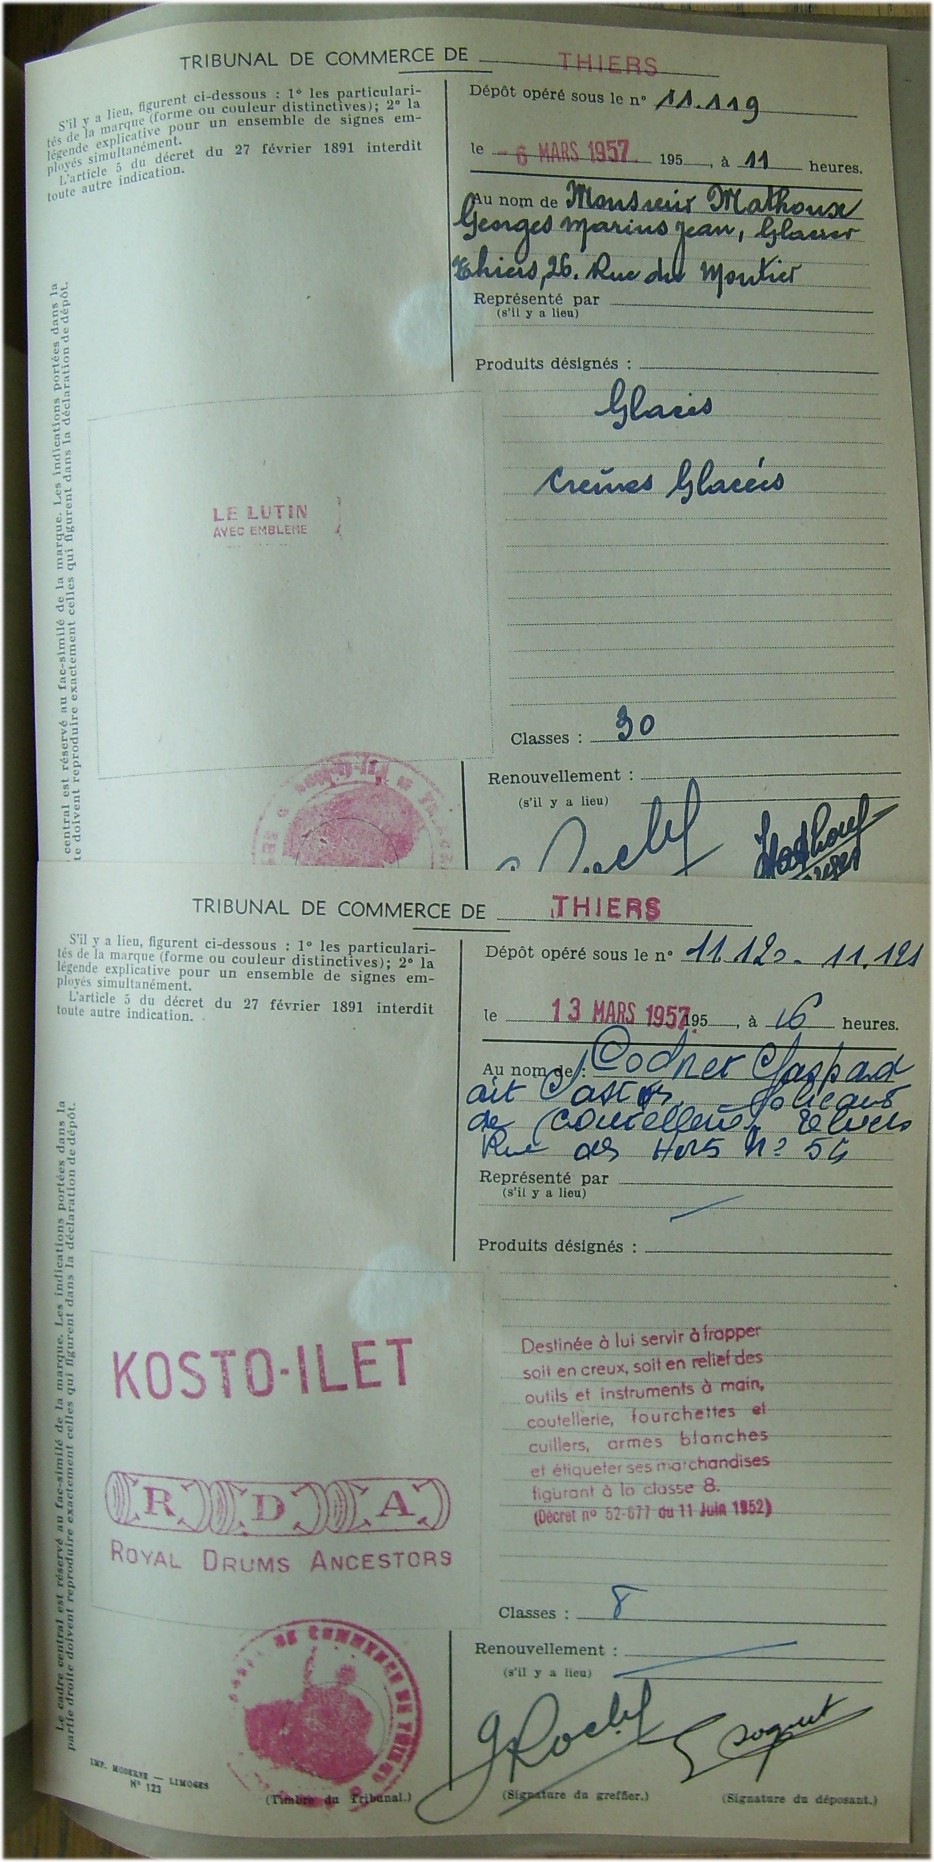 TRIBUNAL DE COMMERCE DE THIERS
S'il y a lieu, figurent ci-dessous : 1° les particulari-
tés de la marque (forme ou couleur distinctives); 2° la
légende explicative pour un ensemble de signes em-
ployés simultanément.
L'article 5 du décret du 27 février 1891 interdit
toute autre indication.
Dépôt opéré sous le n° 11.119
le - 6 MARS 1957 195 , à 11 heures.
Au nom de Monsieur Mathoux
Georges Marius Jean, Glacier
Thiers, 26. Rue du Moutier
Représenté par
(s'il y a lieu)
Produits désignés :
Glaces
Crèmes Glacées
LE LUTIN
AVEC EMBLEME
Classes : 30
Renouvellement :
(s'il y a lieu)
central est réservé au fac-similé de la marque. Les indications portées dans la
te doivent reproduire exactement celles qui figurent dans la déclaration de dépôt.
TRIBUNAL DE COMMERCE DE THIERS
S'il y a lieu, figurent ci-dessous : 1° les particulari-
tés de la marque (forme ou couleur distinctives); 2° la
légende explicative pour un ensemble de signes em-
ployés simultanément.
L'article 5 du décret du 27 février 1891 interdit
toute autre indication.
Dépôt opéré sous le n° 11.120 - 11.121
le 13 MARS 1957 195 , à 16 heures.
Au nom de : Gaspard
de Coutellerie, Thiers
Rue des Hors N° 54
Représenté par
(s'il y a lieu)
Produits désignés :
KOSTO-ILET
R D A
ROYAL DRUMS ANCESTORS
Destinée à lui servir à frapper
soit en creux, soit en relief des
outils et instruments à main,
coutellerie, fourchettes et
cuillers, armes blanches
et étiqueter ses marchandises
figurant à la classe 8.
(Décret n° 52-677 du 11 Juin 1952)
Classes : 8
Renouvellement :
(s'il y a lieu)
Le cadre central est réservé au fac-similé de la marque. Les indications portées dans la
partie droite doivent reproduire exactement celles qui figurent dans la déclaration de dépôt.
DE COMMERCE DE THIERS
IMP. MODERNE — LIMOGES
N° 123
(Timbre du Tribunal.)
(Signature du greffier.)
(Signature du déposant.)